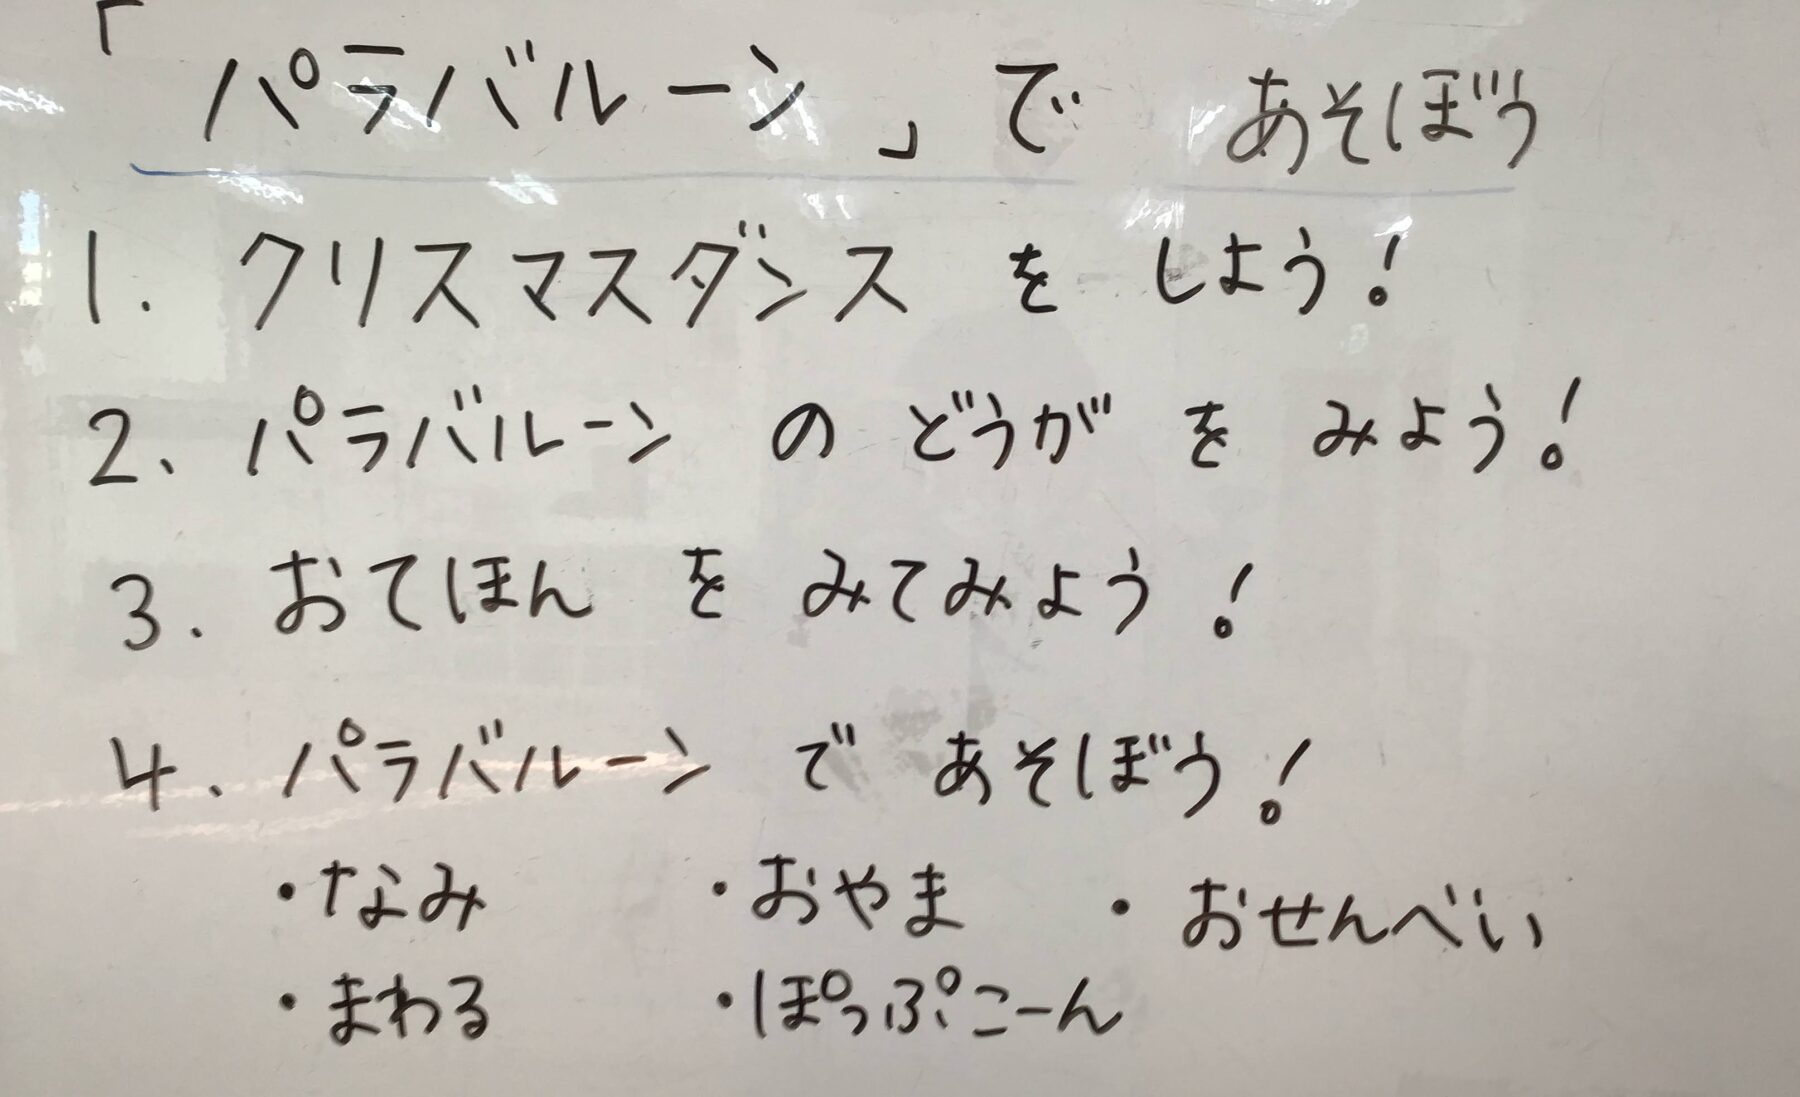 「パラバルーン」で あそぼう
1. クリスマスダンス を しよう!
2、パラバルーン の どうが を みよう!
3. おてほん を みてみよう!
4、パラバルーン で あそぼう!
・なみ ・おやま ・おせんべい
・まわる ・ぽっぷこーん